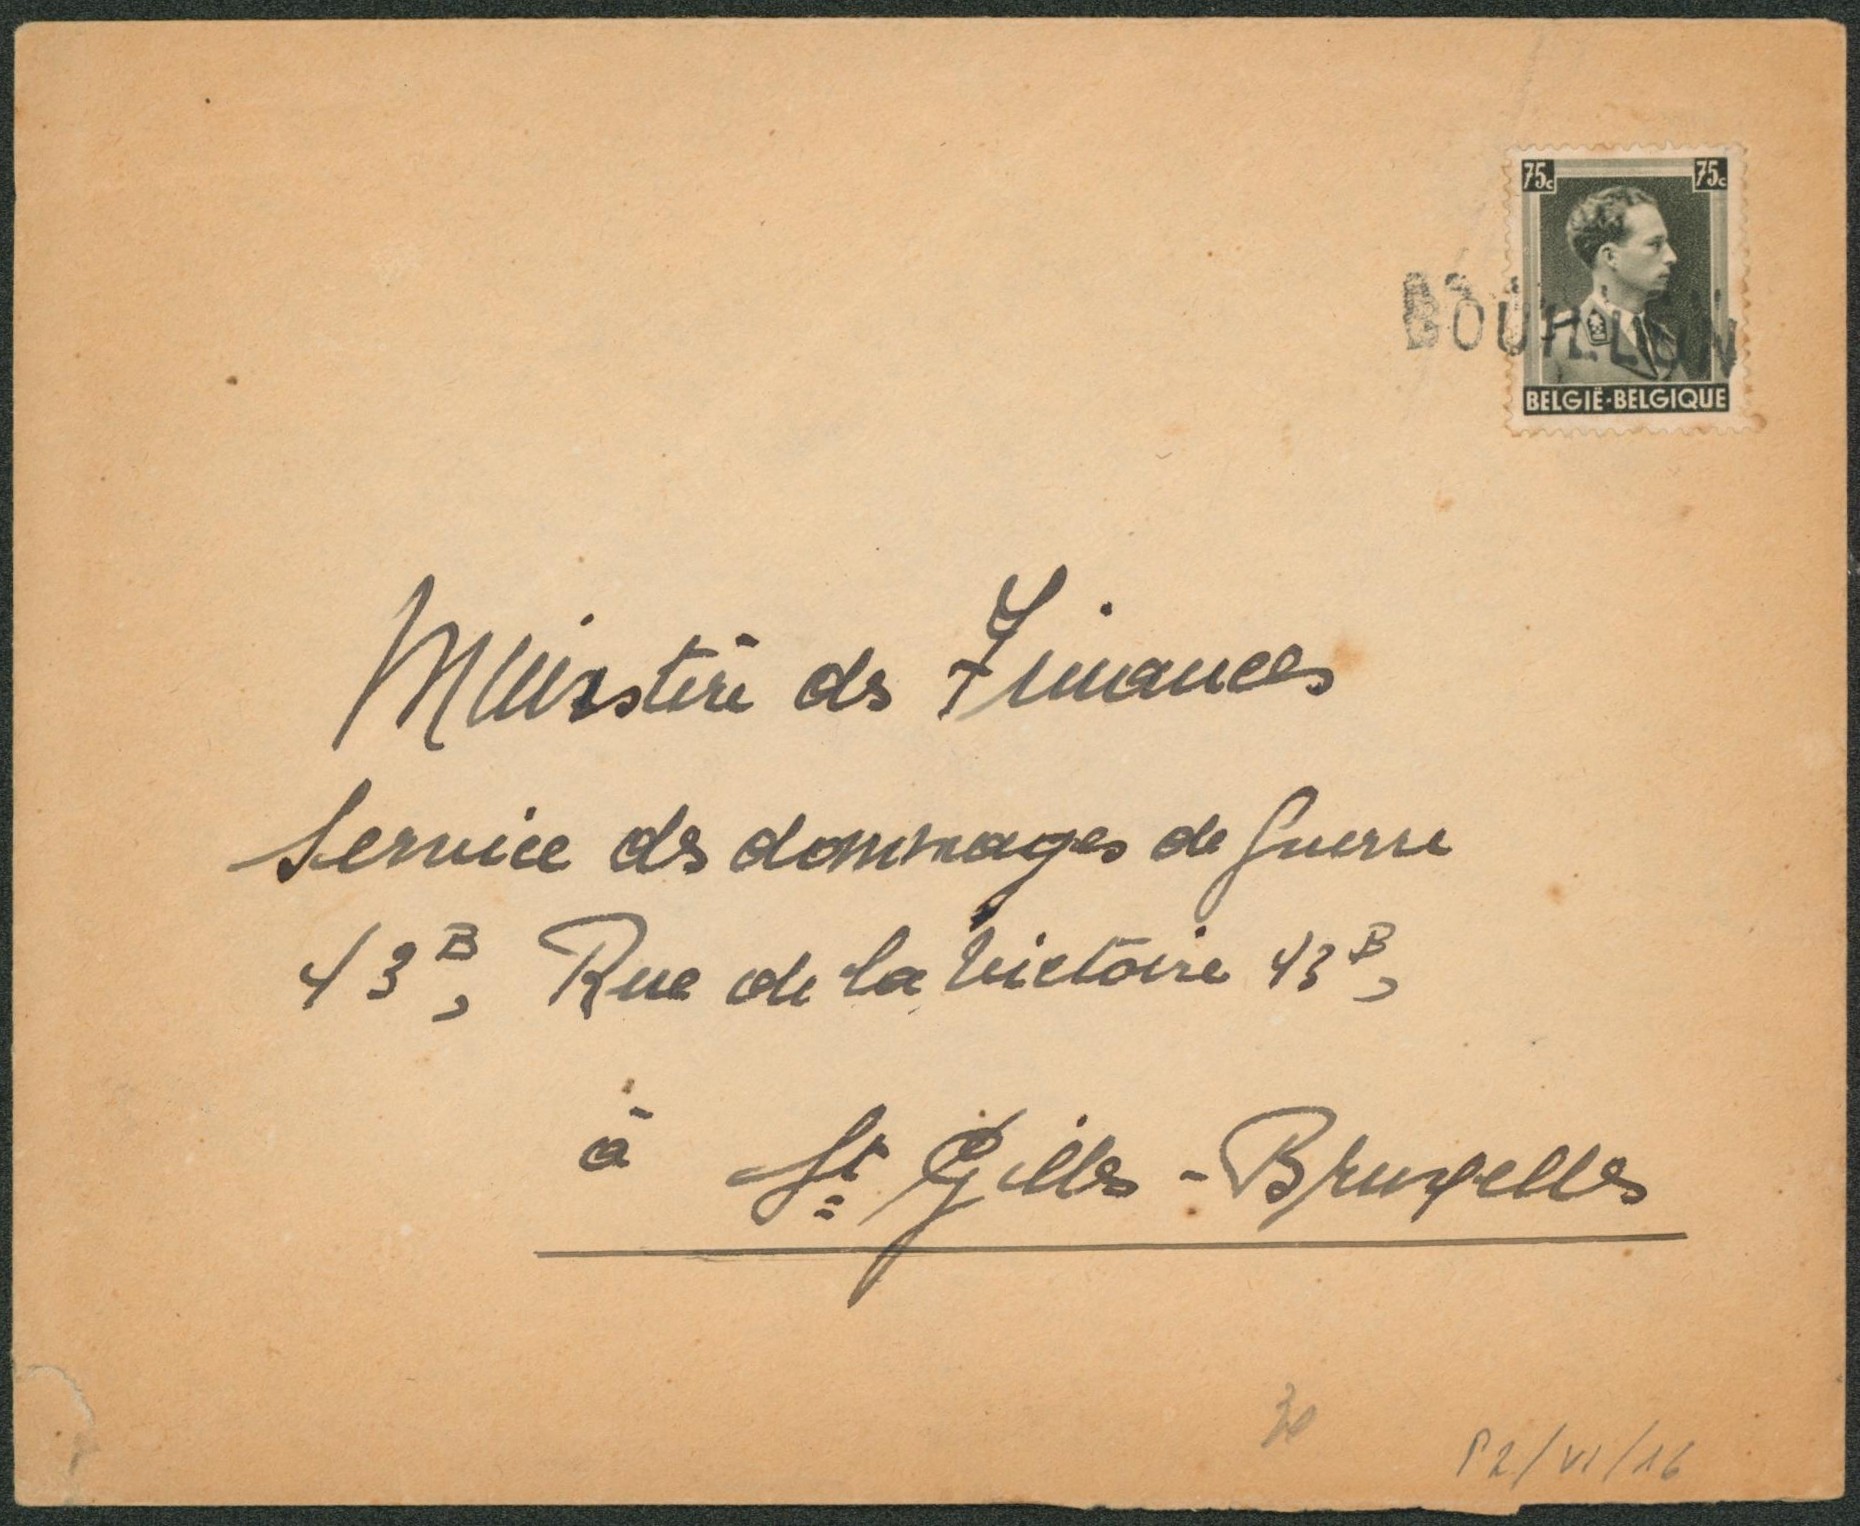 75c 75c
BOUILLON
BELGIË-BELGIQUE
Ministère des Finances
Service des dommages de guerre
43B, Rue de la Victoire 43B,
à St Gilles - Bruxelles
30
P2/VI/16